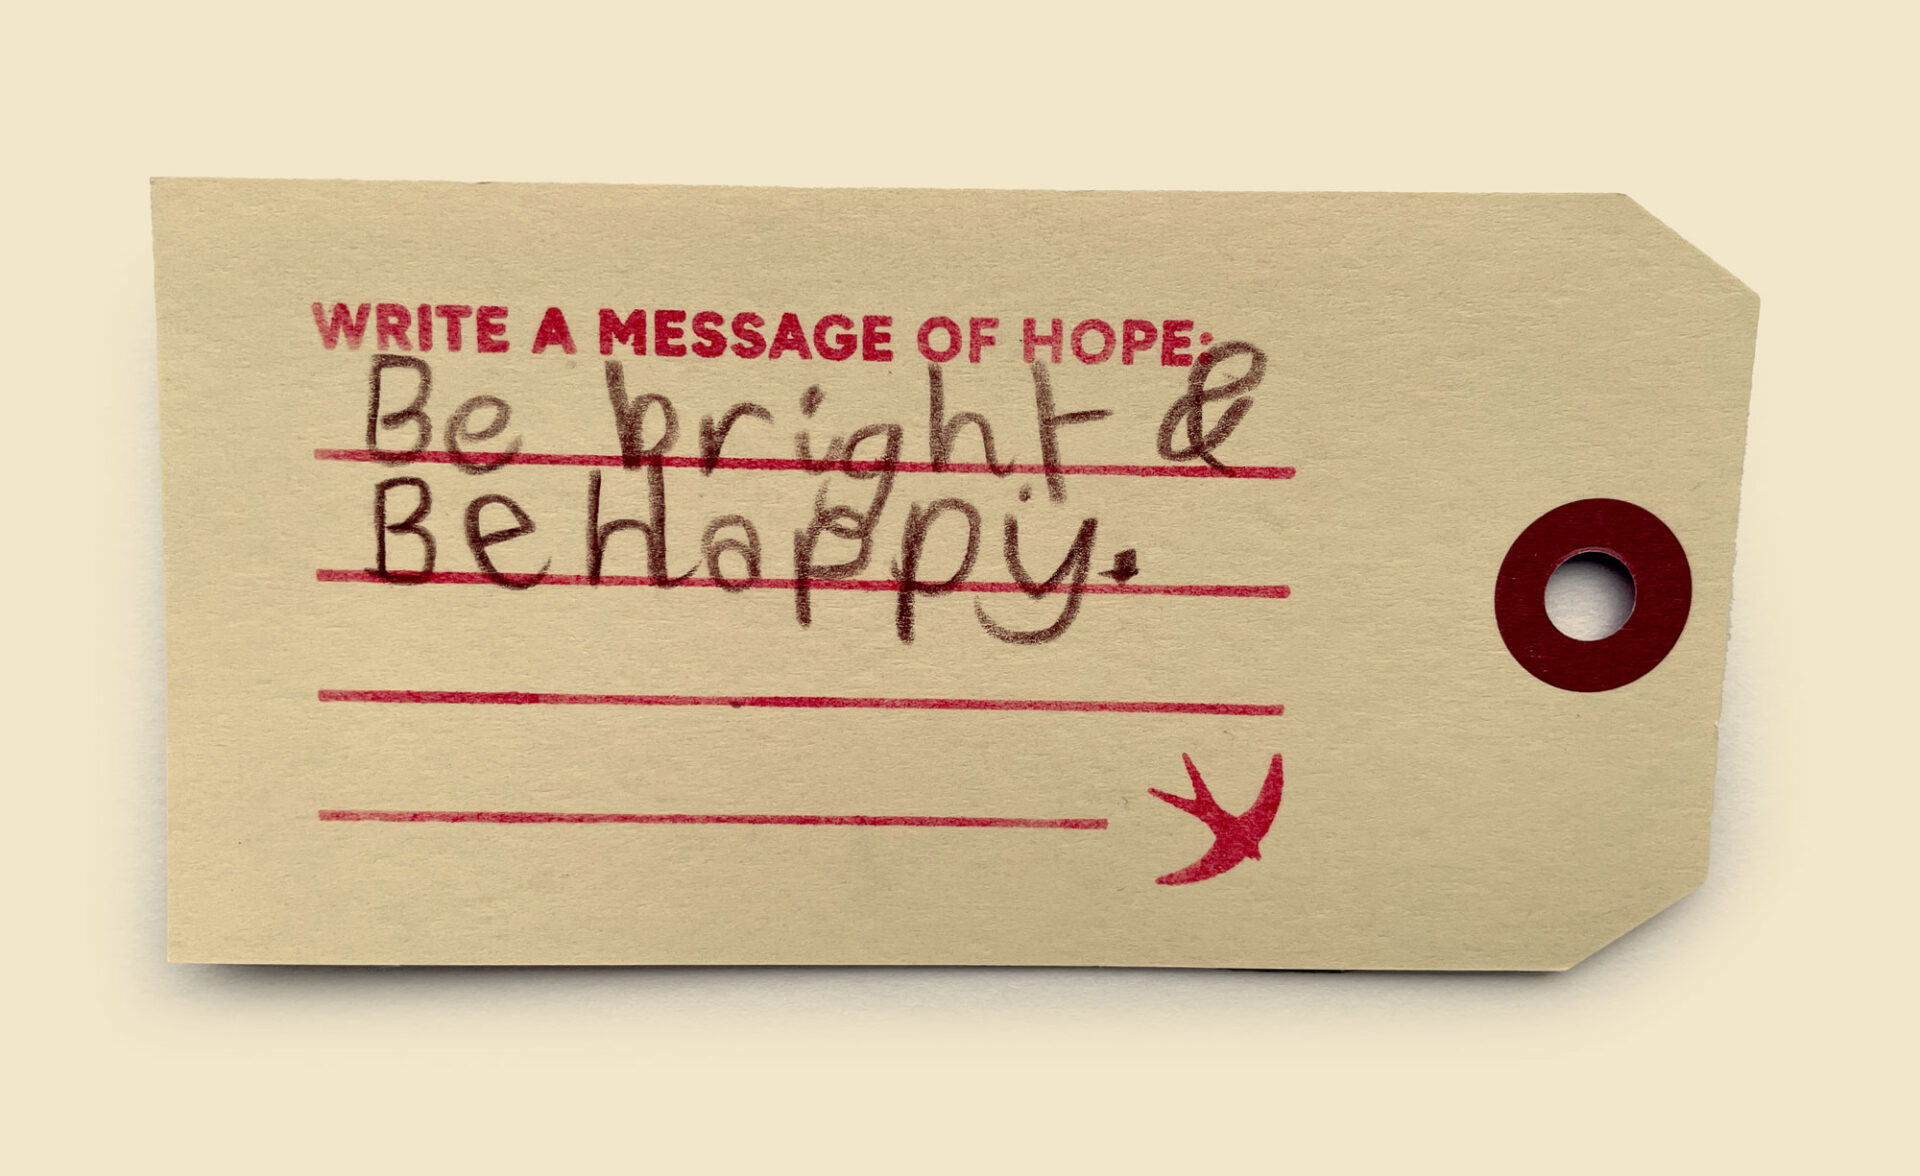 WRITE A MESSAGE OF HOPE:
Be bright &
Be Happy.